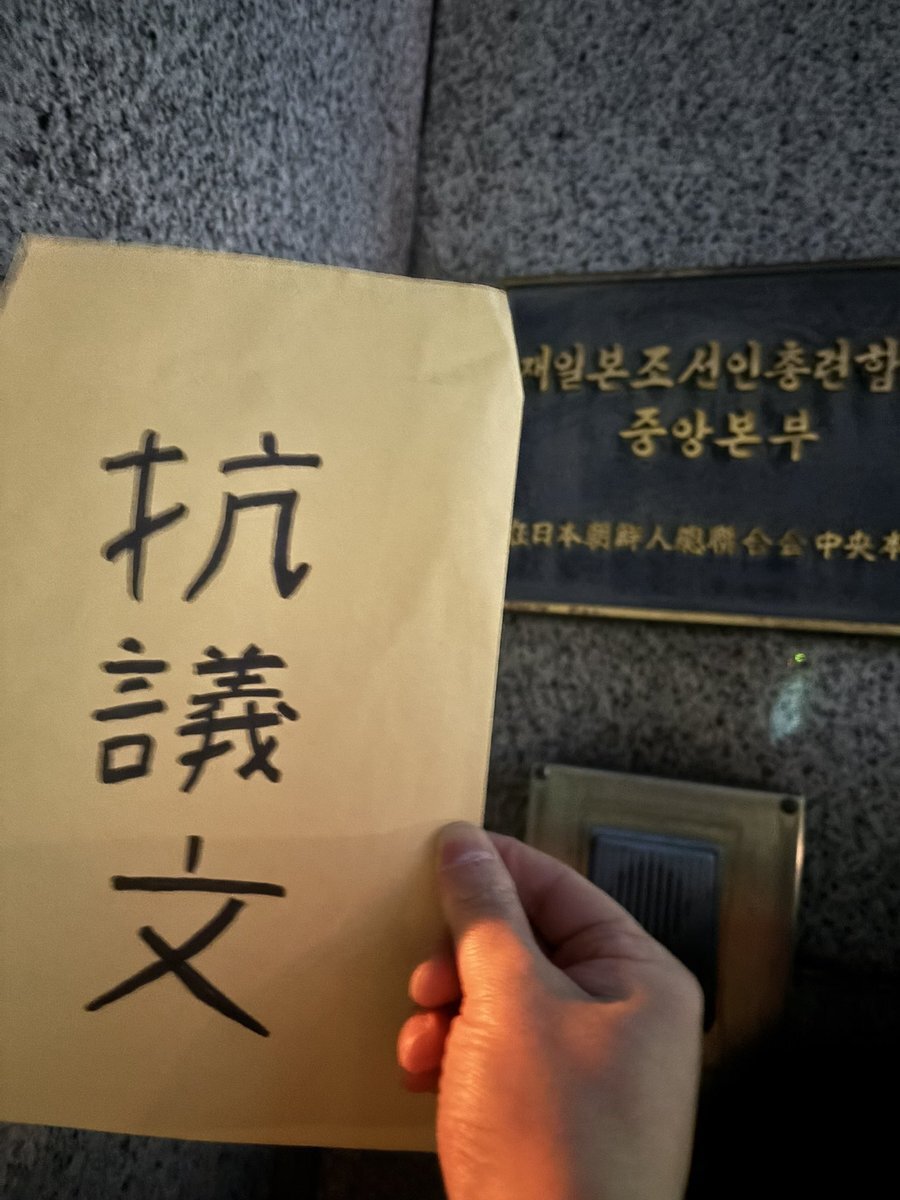 抗議文
재일본조선인총련합
중앙본부
在日本朝鮮人総聯合会中央本